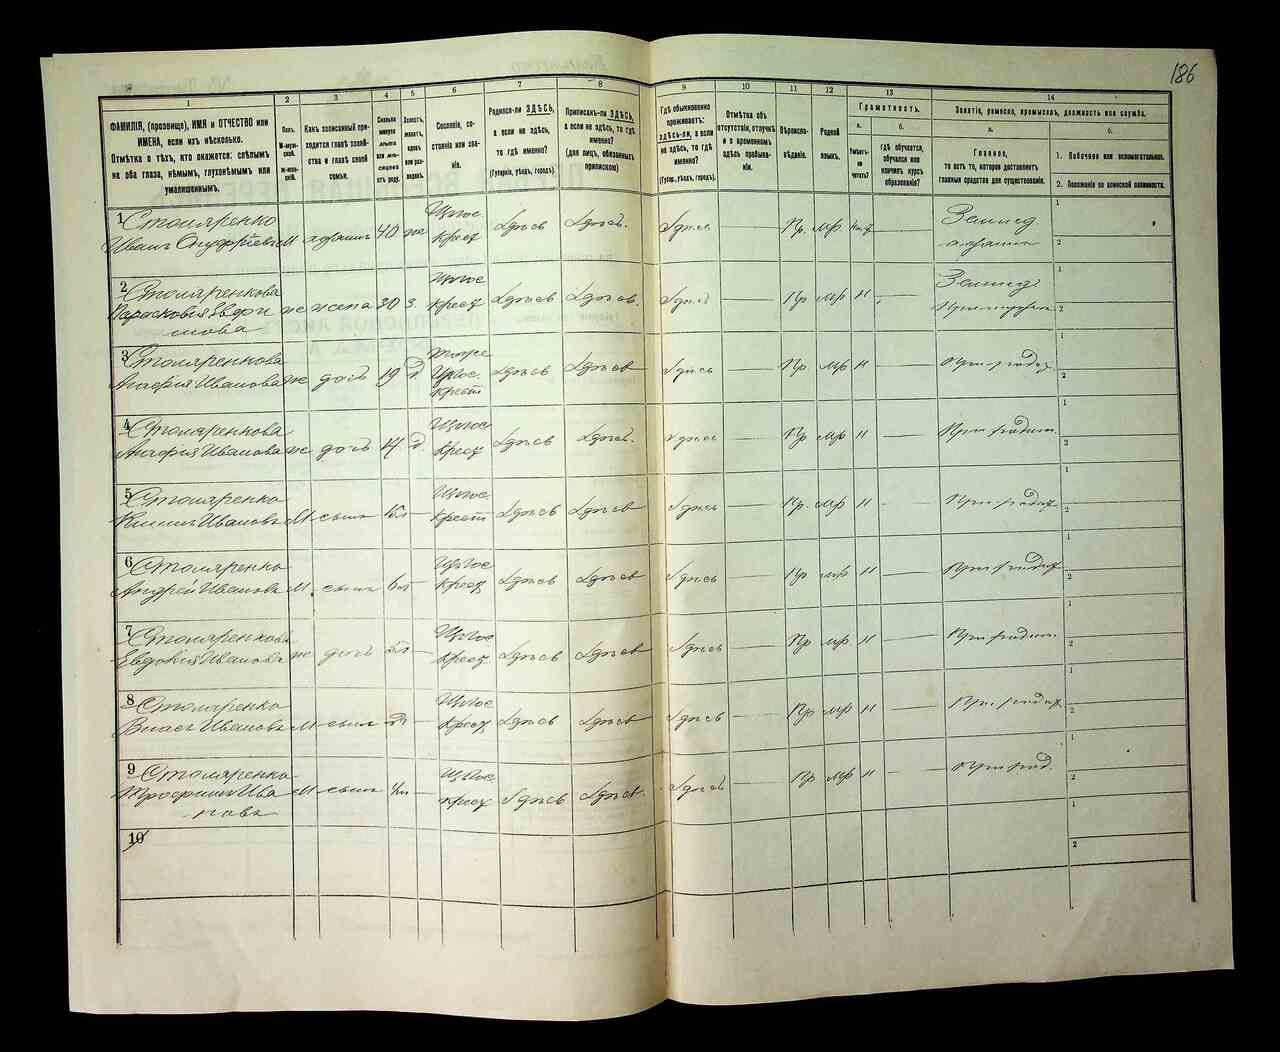 186
1 2 3 4 5 6 7 8 9 10 11 12 13 14
ФАМИЛІЯ, (прозвище), ИМЯ и ОТЧЕСТВО или
ИМЕНА, если ихъ нѣсколько.
Отмѣтка о тѣхъ, кто окажется: слѣпымъ
на оба глаза, нѣмымъ, глухонѣмымъ или
умалишеннымъ.
Полъ.
М-мужской.
Ж-женскій.
Какъ записанный приходится
главѣ хозяйства и главѣ своей
семьи.
Сколько
минуло
лѣтъ
или мѣсяцевъ
отъ роду.
Холостъ,
женатъ,
вдовъ
или разведенъ.
Сословіе, состояніе или званіе.
Родился-ли ЗДѢСЬ,
а если не здѣсь,
то гдѣ именно?
(Губернія, уѣздъ, городъ).
Приписанъ-ли ЗДѢСЬ,
а если не здѣсь, то гдѣ
именно?
(для лицъ, обязанныхъ
припиской)
Гдѣ обыкновенно
проживаетъ:
здѣсь-ли, а если
не здѣсь, то гдѣ
именно?
(Губер., уѣздъ, городъ).
Отмѣтка объ
отсутствіи, отлучкѣ
и о временномъ
здѣсь пребываніи.
Вѣроисповѣданіе.
Родной
языкъ.
Грамотность.
а.
Умѣетъ-ли
читать?
б.
гдѣ обучается,
обучался или
кончилъ курсъ
образованія?
Занятіе, ремесло, промыселъ, должность или служба.
а.
Главное,
то есть то, которое доставляетъ
главныя средства для существованія.
б.
1. Побочное или вспомогательное.
2. Положеніе по воинской повинности.
1 Столяренко
Иванъ Онуфріевъ М хозяинъ 40 же Крест Здѣсь Здѣсь. Здѣсь — Пр. мр. — Землед
хозяинъ
2 Столяренкова
Парасковія же жена 30 З. Крест Здѣсь Здѣсь. Здѣсь — Пр мр н Землед
3 Столяренкова
Агафія Иванова же дочь 19 д. Крест Здѣсь Здѣсь Здѣсь — Пр мр н — При родит
4 Столяренкова
Агафія Иванова же дочь 14 д. Крест Здѣсь Здѣсь. Здѣсь — Пр мр н — При родит.
5 Столяренко
Ивановъ М. сынъ Крест Здѣсь Здѣсь Здѣсь — Пр. мр н — При родит
6 Столяренко
Андрей Ивановъ М. сынъ 6л — Крест Здѣсь Здѣсь Здѣсь — Пр мр н — При родит
7 Столяренкова
Евдокія Иванова же дочь — Крест Здѣсь Здѣсь Здѣсь — Пр мр н — При родит.
8 Столяренко
Власъ Ивановъ М сынъ — Крест Здѣсь Здѣсь Здѣсь — Пр мр н — При родит
9 Столяренко
Трофимъ Ива М сынъ — Крест Здѣсь Здѣсь Здѣсь — Пр мр н — При род.
новъ
10